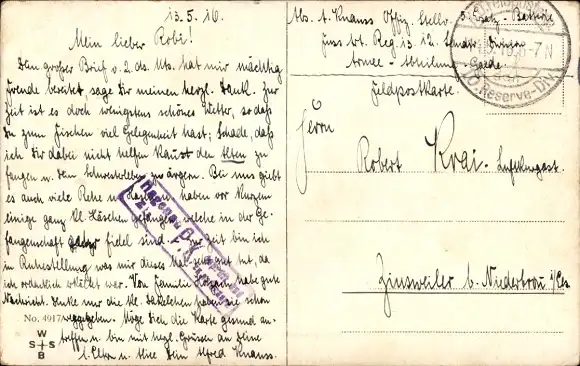 13.5.16.
Mein lieber Robi!
Dein großer Brief v. 2. ds. Mts. hat mir mächtig
Freude bereitet, sage Dir meinen herzl. Dank. Zur
Zeit ist es doch wenigstens schönes Wetter, so daß
Du zum fischen viel Gelegenheit hast; Schade, daß
ich Dir dabei nicht helfen kann den Alten zu
fangen u. den zu ärgern. Bei uns giebt
es auch viele Rehe u. Hasen, haben vor kurzem
einige ganz kl. Häschen gefangen, welche in der Ge-
fangenschaft fidel sind. Zur Zeit bin ich
in Ruhestellung was mir dieses Mal sehr gut tut, da
ich ordentlich erkältet war. Von Familie habe gute
Nachricht. Denke nur die kl. haben sie schon
Möge Dich die Karte gesund an-
treffen u. bin mit hrzl. Grüssen an Deine
l. Eltern u. Alice Dein Alfred Knauss.
No. 4917
W S S B
Abs. A. Knauss Offiz. Stellv. 5. Ersatz-Batterie
Fuss Art. Reg. 13 12. Landw. Division
Armee-Abteilung Gaede.
Feldpostkarte.
7-N
Reserve-Div.
Herrn
Robert Luftkurgast.
Zinsweiler b. Niederbronn i/Els.